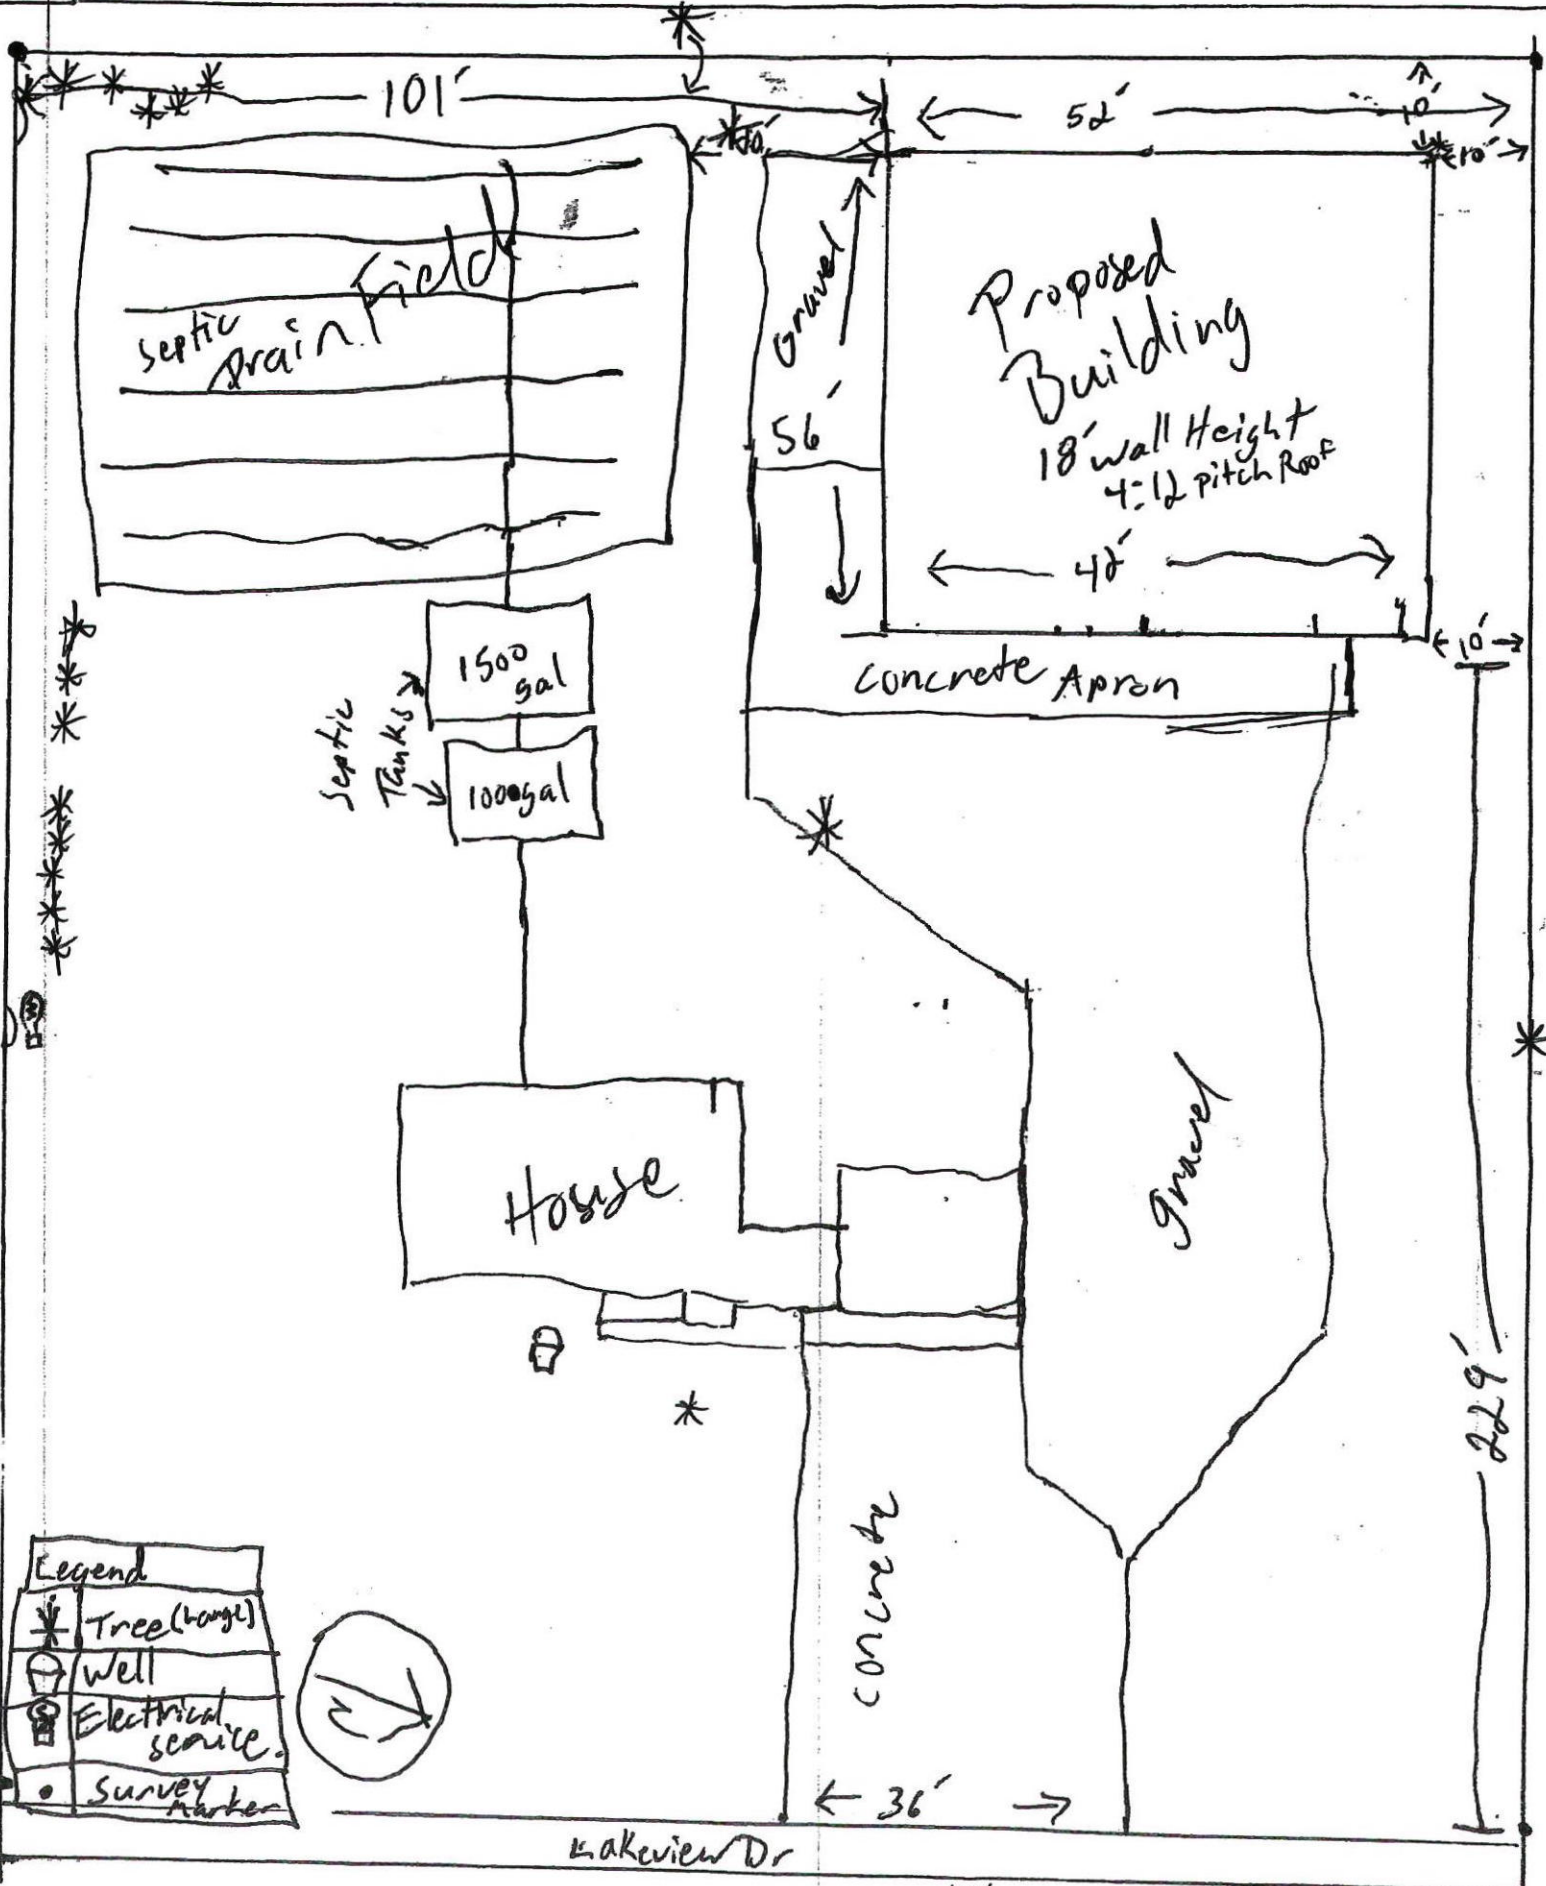 101′
52′
10′
10′
10′
Septic
Drain Field
Gravel
56′
Proposed
Building
18′ wall Height
4:12 pitch Roof
42′
10′
Concrete Apron
1500
gal
Septic
Tanks
1000gal
House
Gravel
229′
Concrete
36′
Legend
Tree (Large)
Well
Electrical
service.
Survey
Marker
N
Lakeview Dr